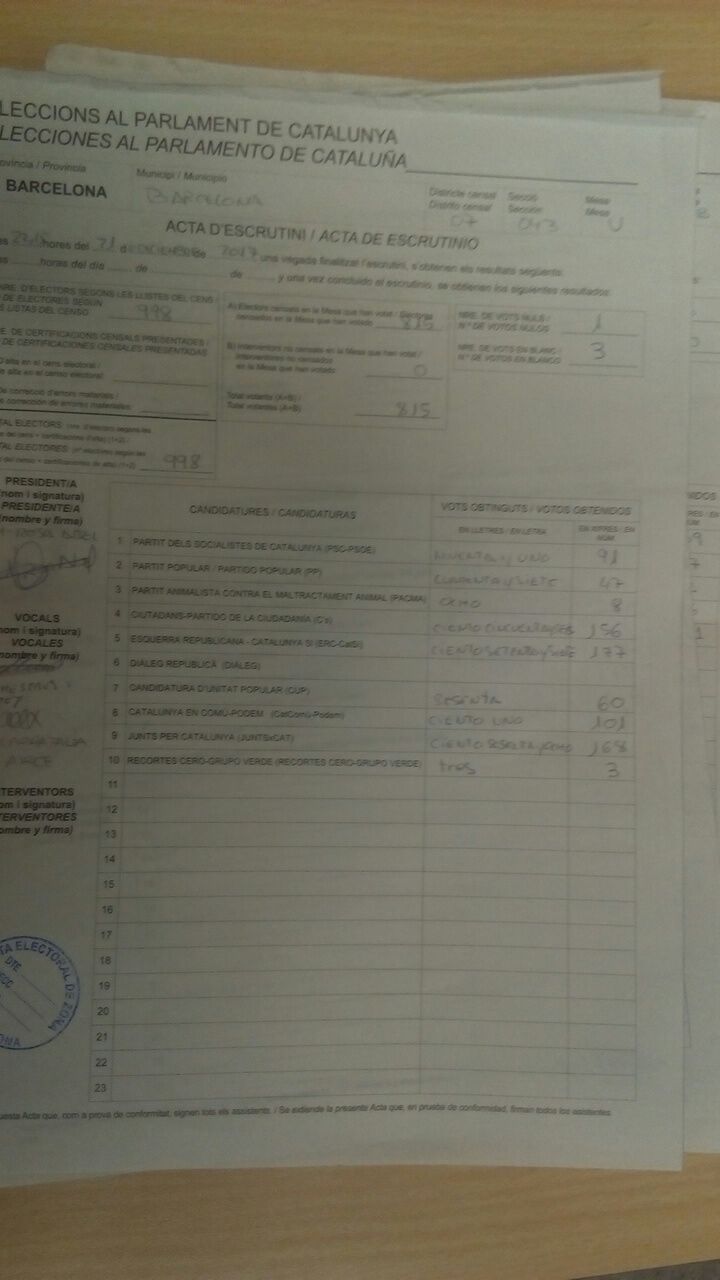 LECCIONS AL PARLAMENT DE CATALUNYA
LECCIONES AL PARLAMENTO DE CATALUÑA
ovíncia / Provincia
Municipi / Municipio
BARCELONA
BARCELONA
Districte censal
Distrito censal
07
Secció
Sección
043
Mesa
Mesa
U
ACTA D'ESCRUTINI / ACTA DE ESCRUTINIO
hores del 21 de de 2017 una vegada finalitzat l'escrutini, s'obtenen els resultats següents:
horas del día de de y una vez concluido el escrutinio, se obtienen los siguientes resultados:
NRE. D'ELECTORS SEGONS LES LLISTES DEL CENS /
DE ELECTORES SEGÚN
LISTAS DEL CENSO
998
E. DE CERTIFICACIONS CENSALS PRESENTADES /
DE CERTIFICACIONES CENSALES PRESENTADAS
D'alta en el cens electoral /
e alta en el censo electoral:
De correcció d'errors materials /
corrección de errores materiales:
TAL ELECTORS:
TAL ELECTORES:
998
A) Electors censats en la Mesa que han votat / Electores
censados en la Mesa que han votado
815
B) Interventors no censats en la Mesa que han votat /
Interventores no censados
en la Mesa que han votado
0
Total votants (A+B) /
Total votantes (A+B)
815
NRE. DE VOTS NULS /
N.º DE VOTOS NULOS
1
NRE. DE VOTS EN BLANC /
N.º DE VOTOS EN BLANCO
3
PRESIDENT/A
(nom i signatura)
PRESIDENTE/A
(nombre y firma)
VOCALS
(nom i signatura)
VOCALES
(nombre y firma)
TERVENTORS
om i signatura)
TERVENTORES
ombre y firma)
CANDIDATURES / CANDIDATURAS
VOTS OBTINGUTS / VOTOS OBTENIDOS
EN LLETRES / EN LETRA
EN XIFRES / EN NÚM.
1 PARTIT DELS SOCIALISTES DE CATALUNYA (PSC-PSOE) NOVENTA y UNO 91
2 PARTIT POPULAR / PARTIDO POPULAR (PP) CUARENTA y SIETE 47
3 PARTIT ANIMALISTA CONTRA EL MALTRACTAMENT ANIMAL (PACMA) OCHO 8
4 CIUTADANS-PARTIDO DE LA CIUDADANÍA (C's) 156
5 ESQUERRA REPUBLICANA - CATALUNYA SÍ (ERC-CatSí) CIENTO SETENTA y SIETE 177
6 DIÀLEG REPUBLICÀ (DIÀLEG)
7 CANDIDATURA D'UNITAT POPULAR (CUP) SESENTA 60
8 CATALUNYA EN COMÚ-PODEM (CatComú-Podem) CIENTO UNO 101
9 JUNTS PER CATALUNYA (JUNTSxCAT) CIENTO SESENTA y OCHO 168
10 RECORTES CERO-GRUPO VERDE (RECORTES CERO-GRUPO VERDE) tres 3
11
12
13
14
15
16
17
18
19
20
21
22
23
TA ELECTORAL DE ZONA
DTE
ONA
uesta Acta que, com a prova de conformitat, signen tots els assistents. / Se extiende la presente Acta que, en prueba de conformidad, firman todos los asistentes.